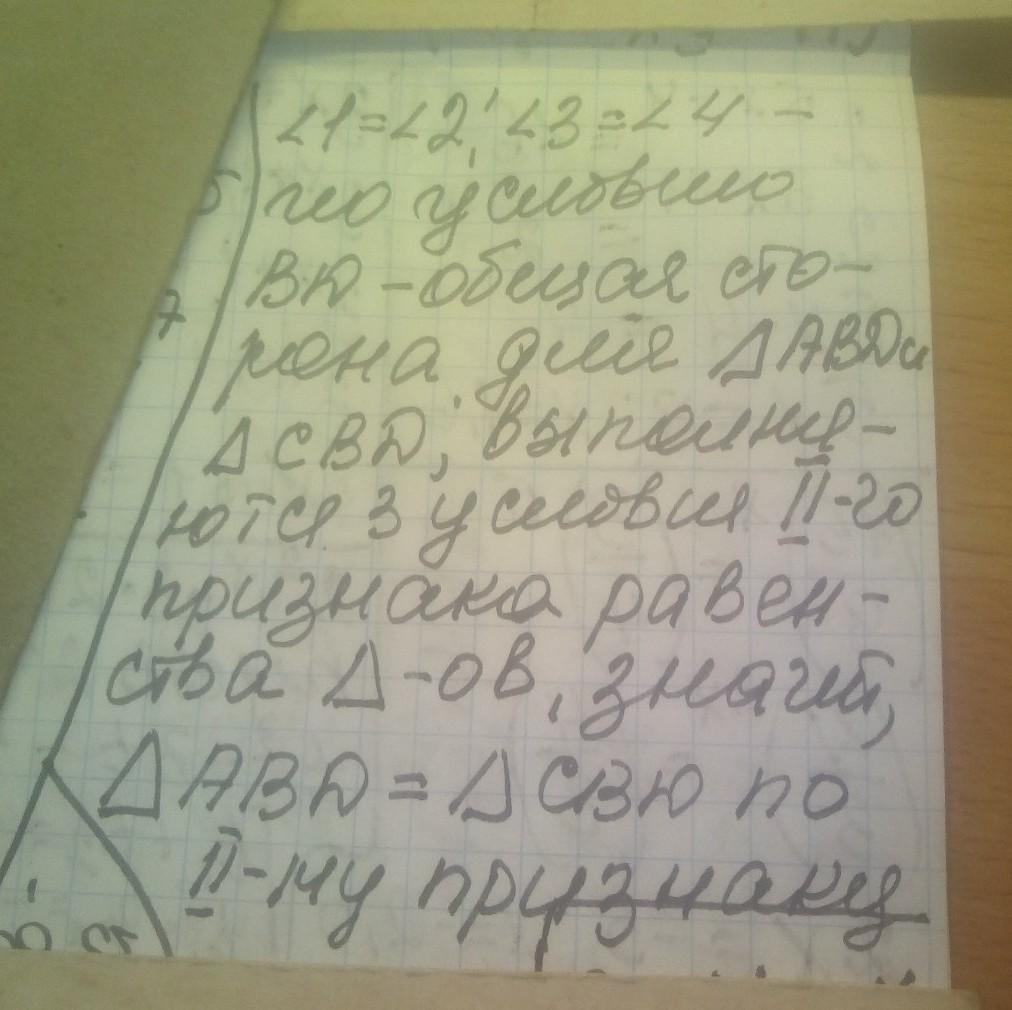 ∠1=∠2; ∠3=∠4 –
по условию
BD – общая сто-
рона для ΔABD и
ΔCBD; выполня-
ются 3 условия II-го
признака равен-
ства Δ-ов, значит,
ΔABD = ΔCBD по
II-му признаку